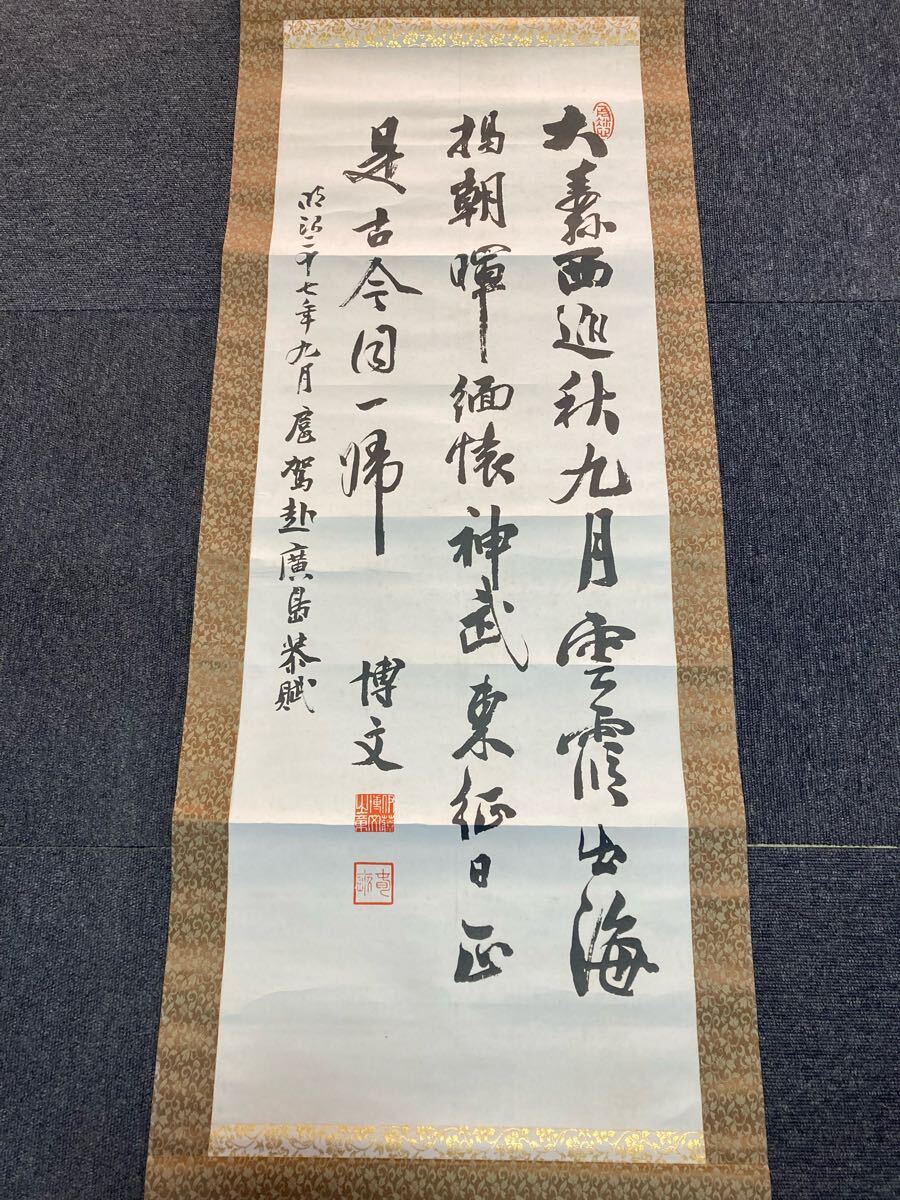 大纛西巡秋九月雲霞出海
揭朝暉緬懐神武東征日正
是古今同一歸
明治二十七年九月扈駕赴廣島恭賦
博文
伊藤博文之章